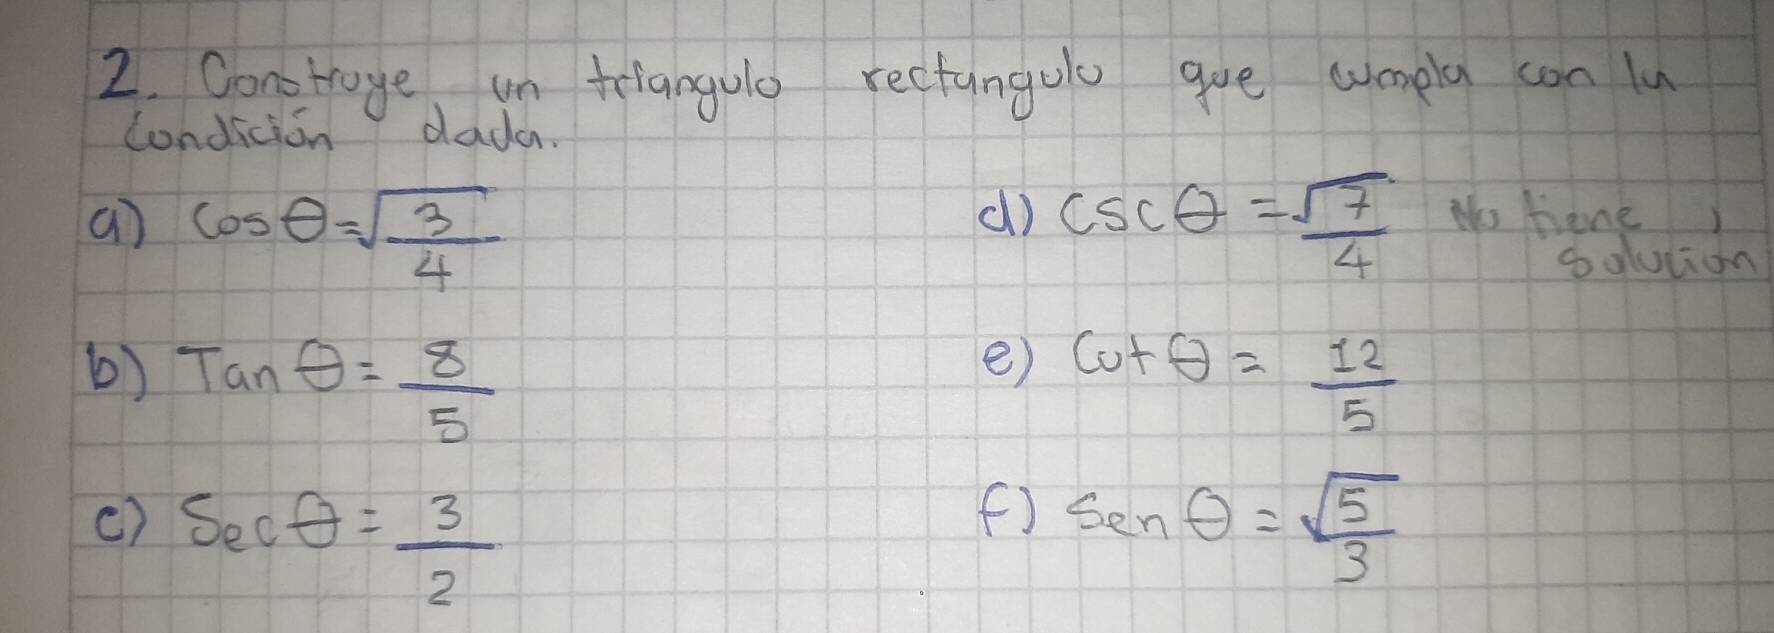 2. Construye un triangulo rectangulo que cumpla con la
condición dada.
a) Cos θ = √3/4
d) CSC θ = √7/4 No tiene solución
b) Tan θ = 8/5
e) Cot θ = 12/5
c) Sec θ = 3/2
f) Sen θ = √5/3